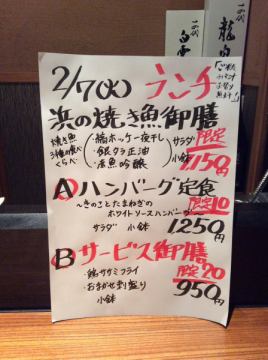 2/7(火) ランチ
浜の焼き魚御膳
焼き魚
3種の食べ
くらべ
・縞ホッケ一夜干し
・銀タラ正油
・赤魚吟醸
サラダ
小鉢
限定
1150円
A ハンバーグ定食
～きのことたまねぎの
ホワイトソースハンバーグ～
限定10
サラダ 小鉢 1250円
B サービス御膳
・鶏ササミフライ
・おまかせ刺し盛り
小鉢
限定20
950円